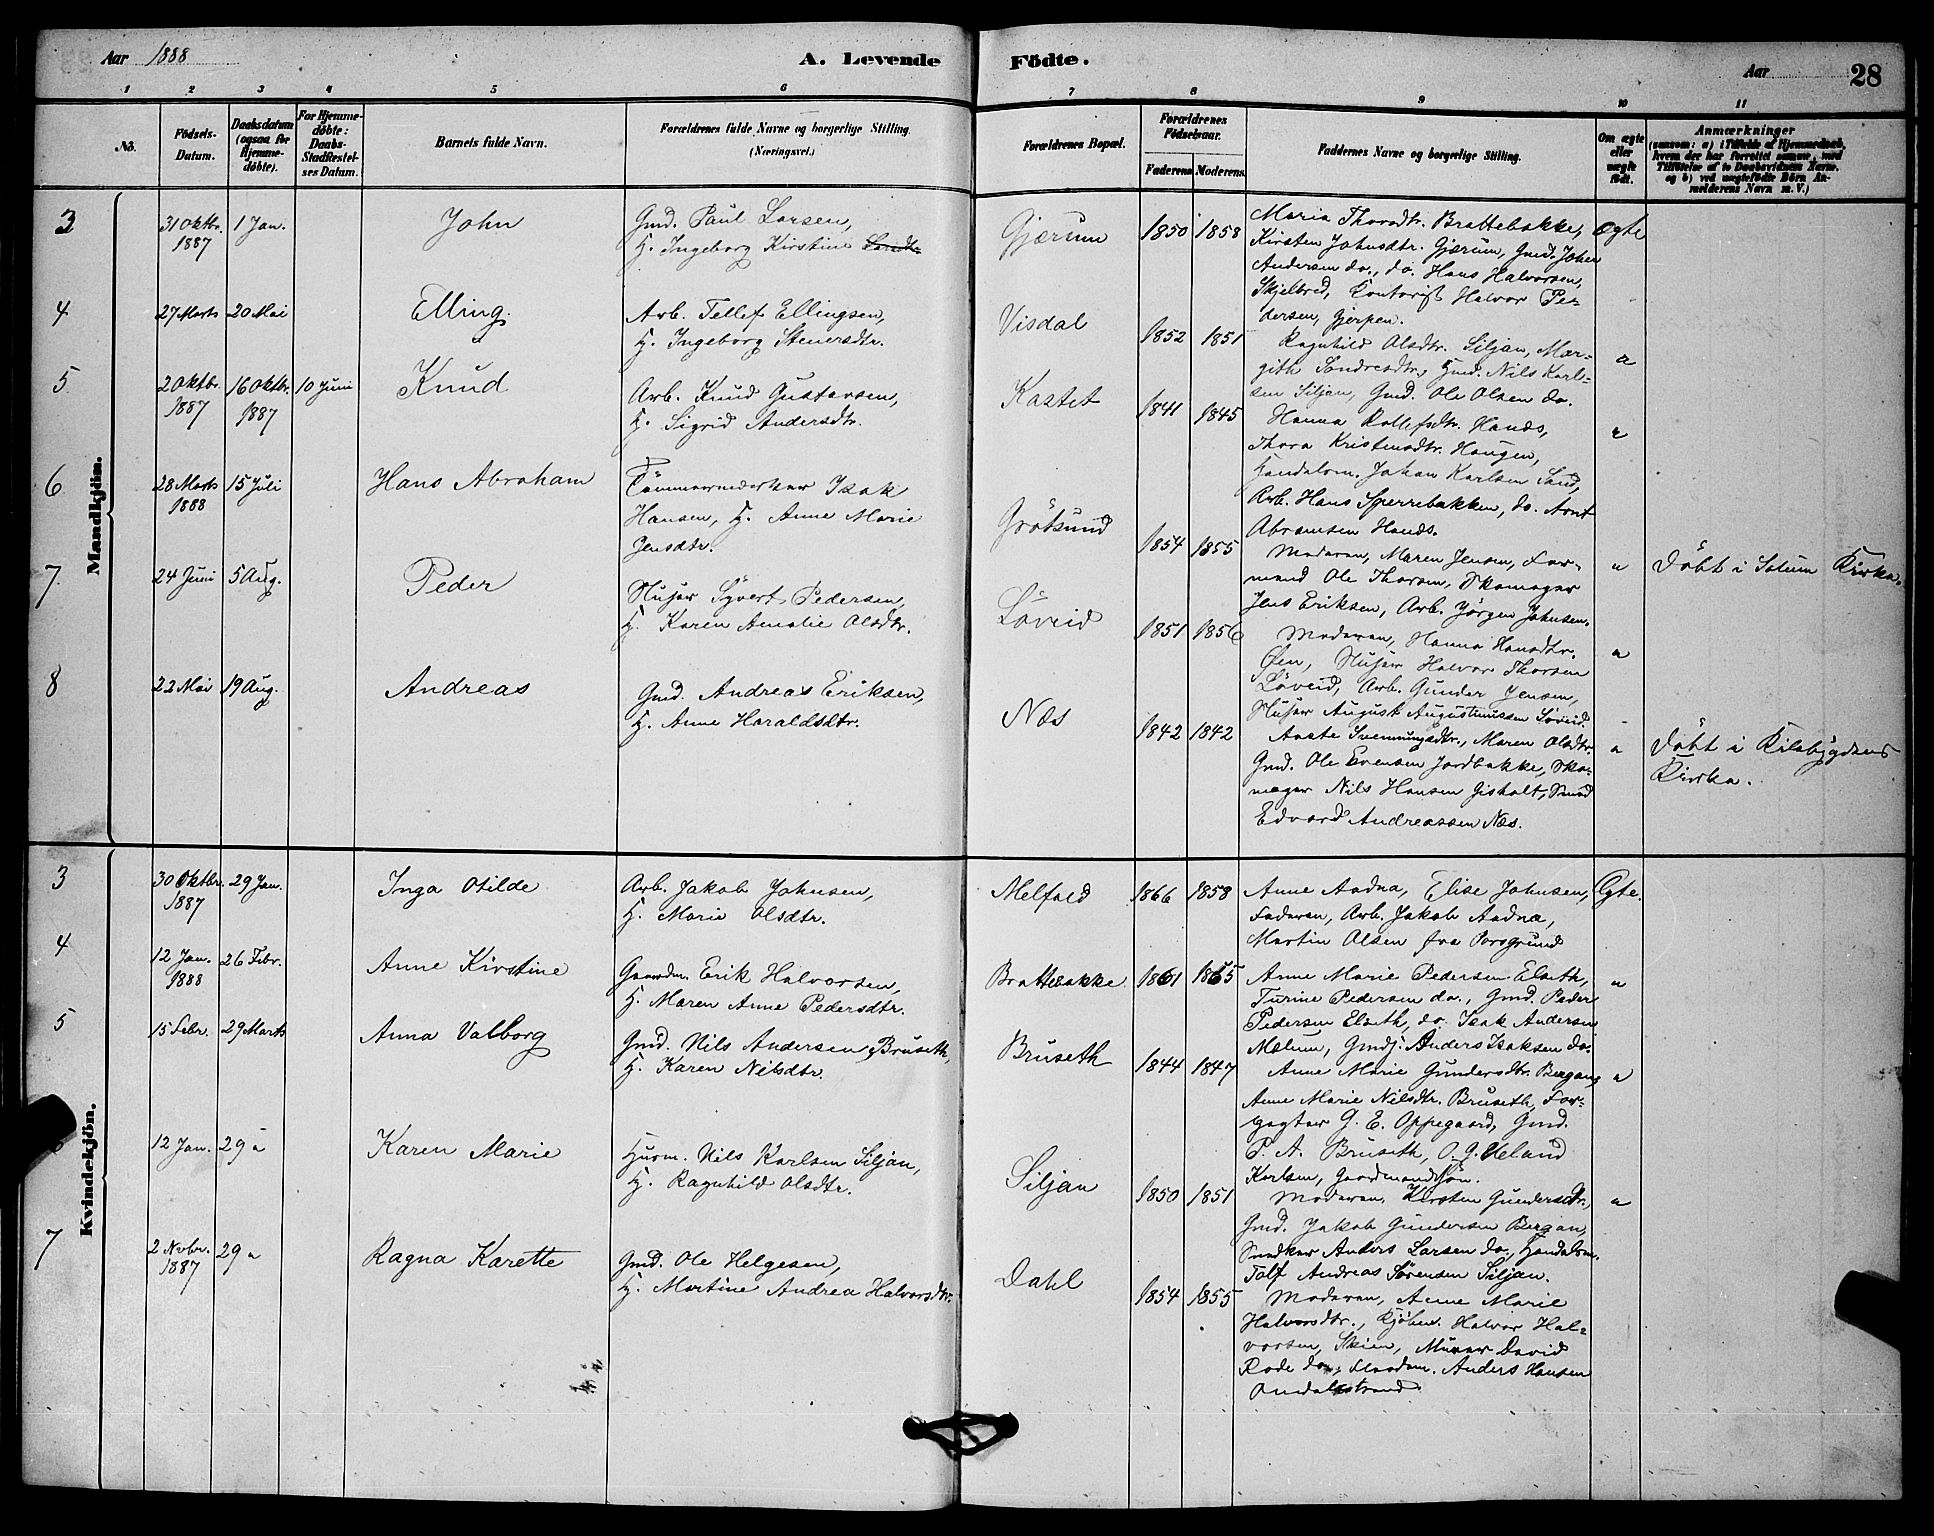 Aar 1888
A. Levende Födte.
Aar 28
1 2 3 4 5 6 7 8 9 10 11
No.
Födsels-
Datum.
Daabsdatum
(ogsaa for
Hjemme-
döbte).
For Hjemme-
döbte:
Daabs-
Stadfæstel-
ses Datum.
Barnets fulde Navn.
Forældrenes fulde Navne og borgerlige Stilling.
(Næringsvei.)
Forældrenes Bopæl.
Forældrenes
Födselsaar.
Faderens Moderens.
Faddernes Navne og borgerlige Stilling.
Om ægte
eller
uægte
födt.
Anmærkninger
(saasom: a) i Tilfælde af Hjemmedaab,
hvem der har forrettet samme, med
Tilföielse af to Daabsvidners Navne,
og b) ved uægtefödte Börn An-
melderens Navn m. V.)
Mandkjön.
3
31 Oktbr.
1887
1 Jan.
John
Gmd. Paul Larsen,
H. Ingeborg Kirstine
Gjærum
1850 1858
Maria Thorsdtr. Brattebakke,
Kirsten Johnsdtr. Gjærum, Gmd. Johen
Andersen do., do. Hans Halvorsen,
Skjelbred, Kontorist Halvor Pe-
dersen, Gjerpen.
Ægte
4
27 Marts
20 Mai
Elling.
Arb. Tellef Ellingsen,
H. Ingeborg Stenersdtr.
Visdal
1852 1851
Ragnhild Olsdtr. Siljan, Mar-
gith Sondresdtr., Hmd. Nils Karl-
sen Siljan, Gmd. Ole Olsen do.
"
5
2 Oktbr.
1887
16 Oktbr.
1887
10 Juni
Knud
Arb. Knud Gustavsen,
H. Sigrid Andersdtr.
Kastet
1841 1845
Hanna Rollefsdtr. Hands,
Thora Kristensdtr. Haugen,
Handelsm. Johan Karlsen Sand,
Arb. Hans Sperrebakken, do. Arnt
Abramsen Hands.
"
6
28 Marts
1888
15 Juli
Hans Abraham
Tömmermerker Isak
Hansen, H. Anne Marie
Jensdtr.
Grötsund
1854 1855
Moderen, Maren Jensen, For-
mand Ole Thorsen, Skomager
Jens Eriksen, Arb. Jörgen Johnsen.
"
Döbt i Solum Kirke.
7.
24 Juni
5 Aug.
Peder
Husjer Syvert Pedersen,
H. Karen Amalie Olsdtr.
Löveid
1851 1856
Moderen, Hanna Hansdtr.
Øen, Husjer Halvor Thorsen
Löveid, Arb. Gunder Jensen,
Husjer August Augustinussen Löveid.
"
8
22 Mai
19 Aug.
Andreas
Gmd. Andreas Eriksen,
H. Anne Haraldsdtr.
Næs
1842 1842
Aaste Svenningsdtr., Maren Olsdtr.
Gmd. Ole Evensen Jordbakke, Sko-
mager Nils Hansen Gisholt, Smed
Edvard Andreassen Næs.
"
Döbt i Kilebygdens
Kirke.
Kvindekjön.
3
30 Oktbr.
1887
29 Jan.
Inga Otilde
Arb. Jakob Johnsen,
H. Marie Olsdtr.
Melfald
1866 1858
Anne Aadna, Elise Johnsen,
Faderen, Arb. Jakob Aadna,
Martin Olsen fra Porsgrund
Ægte.
4
12 Jan.
1888
26 Febr.
Anne Kirstine
Gaardm. Erik Halvorsen,
H. Maren Anne Pedersdtr.
Brattebakke
1861 1865
Anne Marie Pedersen Elseth,
Turine Pedersen do., Gmd. Peder
Pedersen Elseth, do. Isak Andersen
Mælum, Gmdj. Anders Isaksen do.
"
5
15 Febr.
29 Marts
Anna Valborg
Gmd. Nils Andersen Bruseth,
H. Karen Nilsdtr.
Bruseth
1844 1847
Anne Marie Gundersdtr. Bergan,
Anne Marie Nilsdtr. Bruseth, For-
pagter G. E. Oppegaard, Gmd.
P. A. Bruseth, O. G. Heland
Karlsen, Gaardmandssön.
"
12 Jan.
29 "
Karen Marie
Husm. Nils Karlsen Siljan,
H. Ragnhild Olsdtr.
Siljan
1850 1851
Moderen, Kirsten Gundersdtr.,
Gmd. Jakob Gundersen Bergan,
Snedker Anders Larsen do., Handelsm.
Tolf Andreas Sörensen Siljan.
"
7
2 Novbr.
1887
29 "
Ragna Karette
Gmd. Ole Helgesen,
H. Martine Andrea Halvorsdtr.
Dahl
1854 1855
Moderen, Anne Marie
Halvorsdtr., Kjöbm. Halvor Hal-
vorsen, Skien, Murer David
Rode do., Anders Hansen
Omdalsstrand.